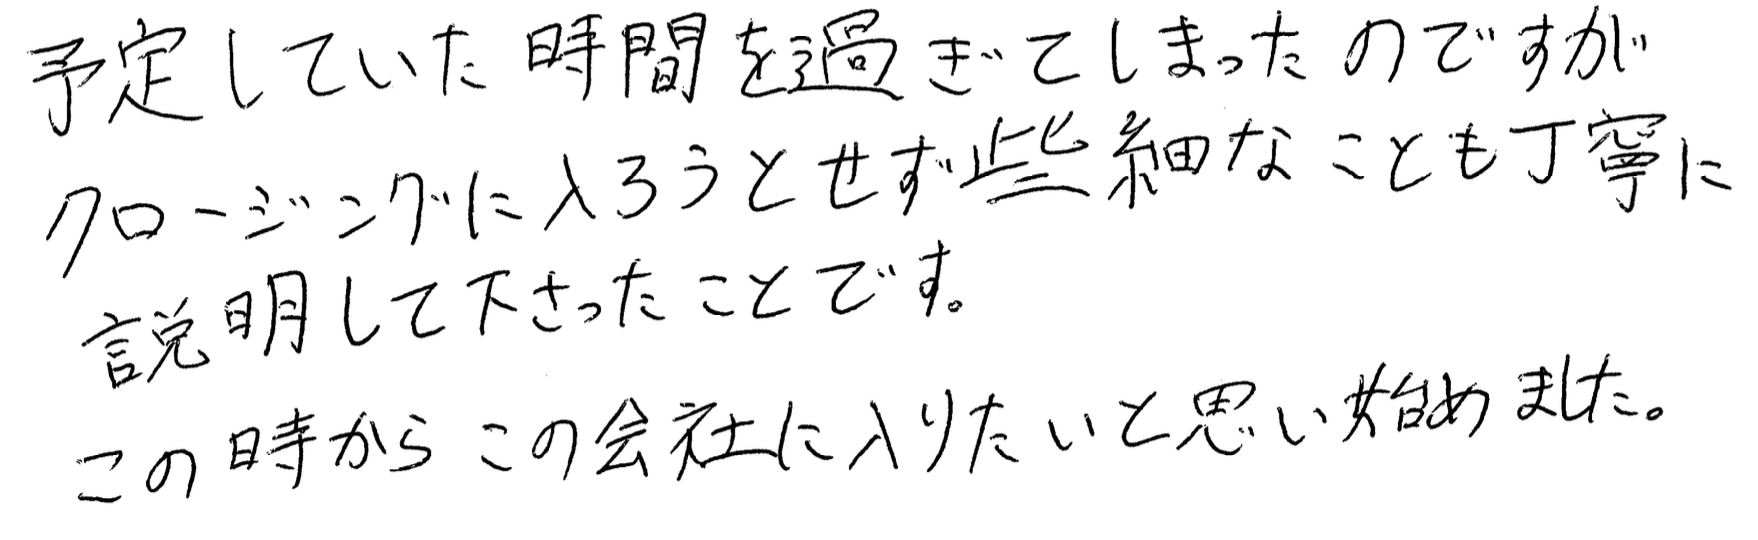 予定していた時間を過ぎてしまったのですが
クロージングに入ろうとせず些細なことも丁寧に
説明して下さったことです。
この時からこの会社に入りたいと思い始めました。